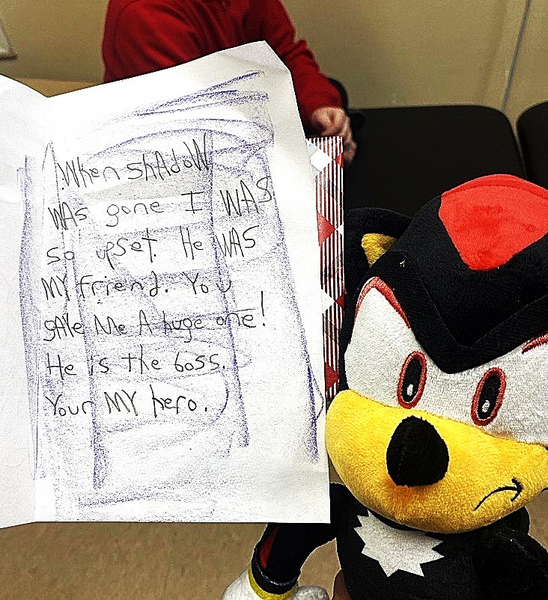 When shAdoW
WAs gone I WAS
so upset. He WAS
MY friend. You
gAve Me A huge one!
He is the boss.
Your MY hero.